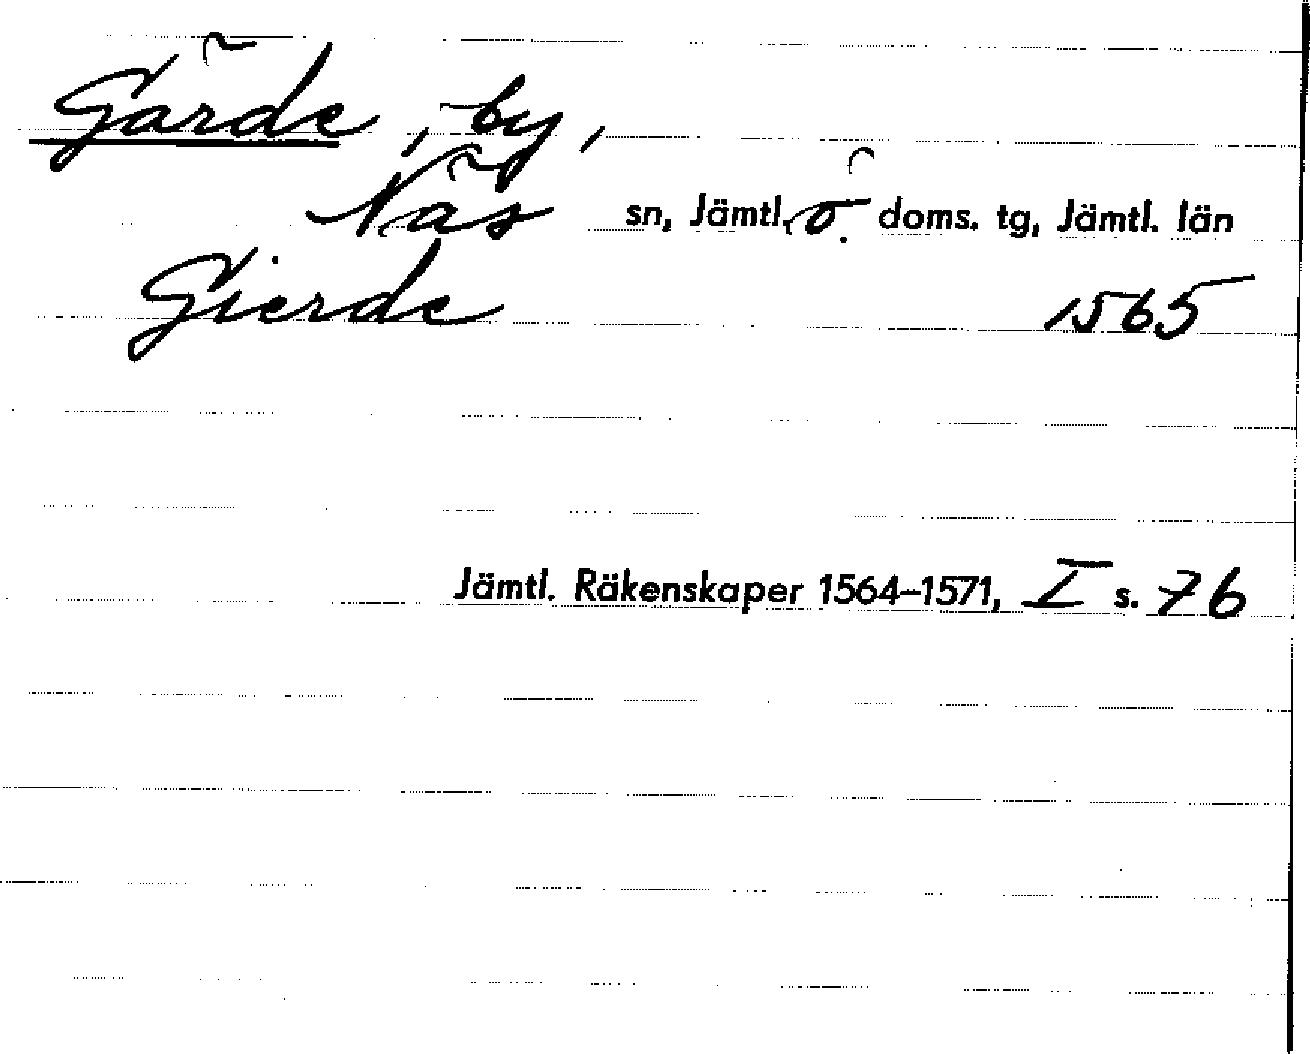 Gärde, by,
Näs sn, Jämtl. ö. doms. tg, Jämtl. län
Gierde 1565
Jämtl. Räkenskaper 1564–1571, I s. 76